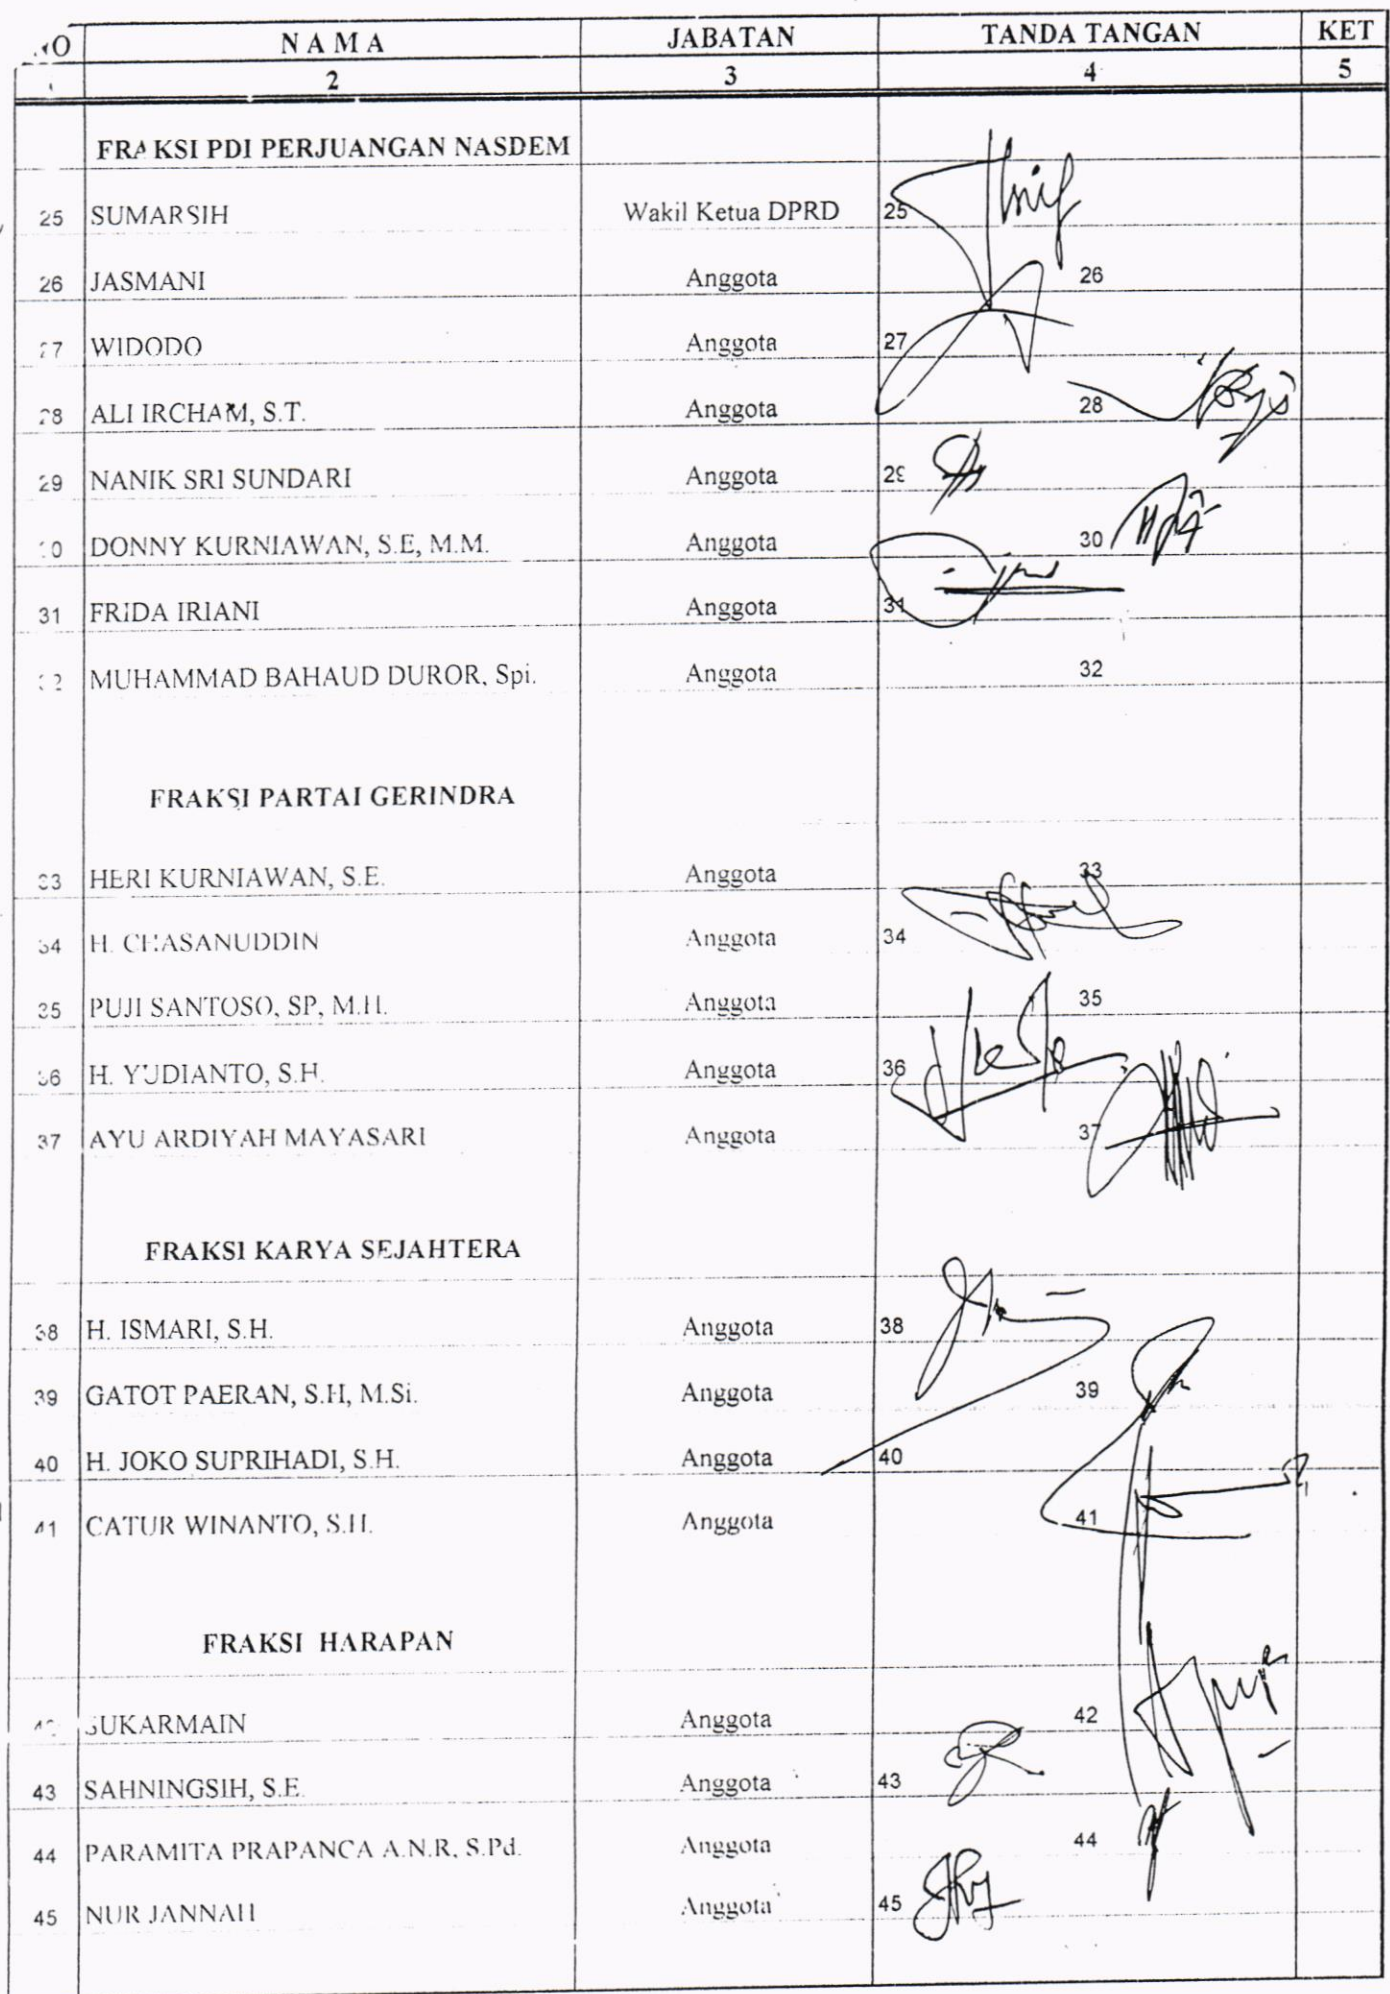 NO NAMA JABATAN TANDA TANGAN KET
2 3 4 5
FRAKSI PDI PERJUANGAN NASDEM
25 SUMARSIH Wakil Ketua DPRD 25
26 JASMANI Anggota 26
27 WIDODO Anggota 27
28 ALI IRCHAM, S.T. Anggota 28
29 NANIK SRI SUNDARI Anggota 29
30 DONNY KURNIAWAN, S.E, M.M. Anggota 30
31 FRIDA IRIANI Anggota 31
32 MUHAMMAD BAHAUD DUROR, Spi. Anggota 32
FRAKSI PARTAI GERINDRA
33 HERI KURNIAWAN, S.E. Anggota 33
34 H. CHASANUDDIN Anggota 34
35 PUJI SANTOSO, SP, M.H. Anggota 35
36 H. YUDIANTO, S.H. Anggota 36
37 AYU ARDIYAH MAYASARI Anggota 37
FRAKSI KARYA SEJAHTERA
38 H. ISMARI, S.H. Anggota 38
39 GATOT PAERAN, S.H, M.Si. Anggota 39
40 H. JOKO SUPRIHADI, S.H. Anggota 40
41 CATUR WINANTO, S.H. Anggota 41
FRAKSI HARAPAN
42 SUKARMAIN Anggota 42
43 SAHNINGSIH, S.E. Anggota 43
44 PARAMITA PRAPANCA A.N.R, S.Pd. Anggota 44
45 NUR JANNAH Anggota 45